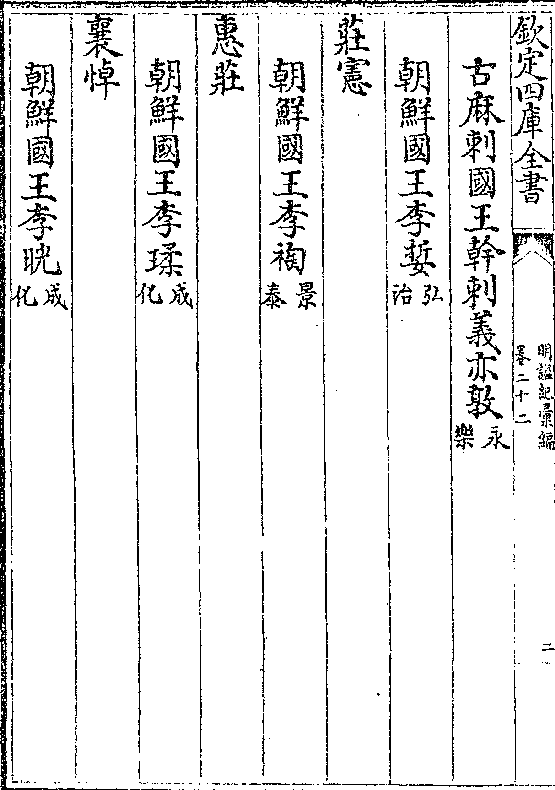 欽定四庫全書
明諡記彙編
卷二十二
二
古麻刺國王幹刺義亦敦永樂
朝鮮國王李娎弘治
莊憲
朝鮮國王李祹景泰
惠莊
朝鮮國王李瑈成化
襄悼
朝鮮國王李晄成化